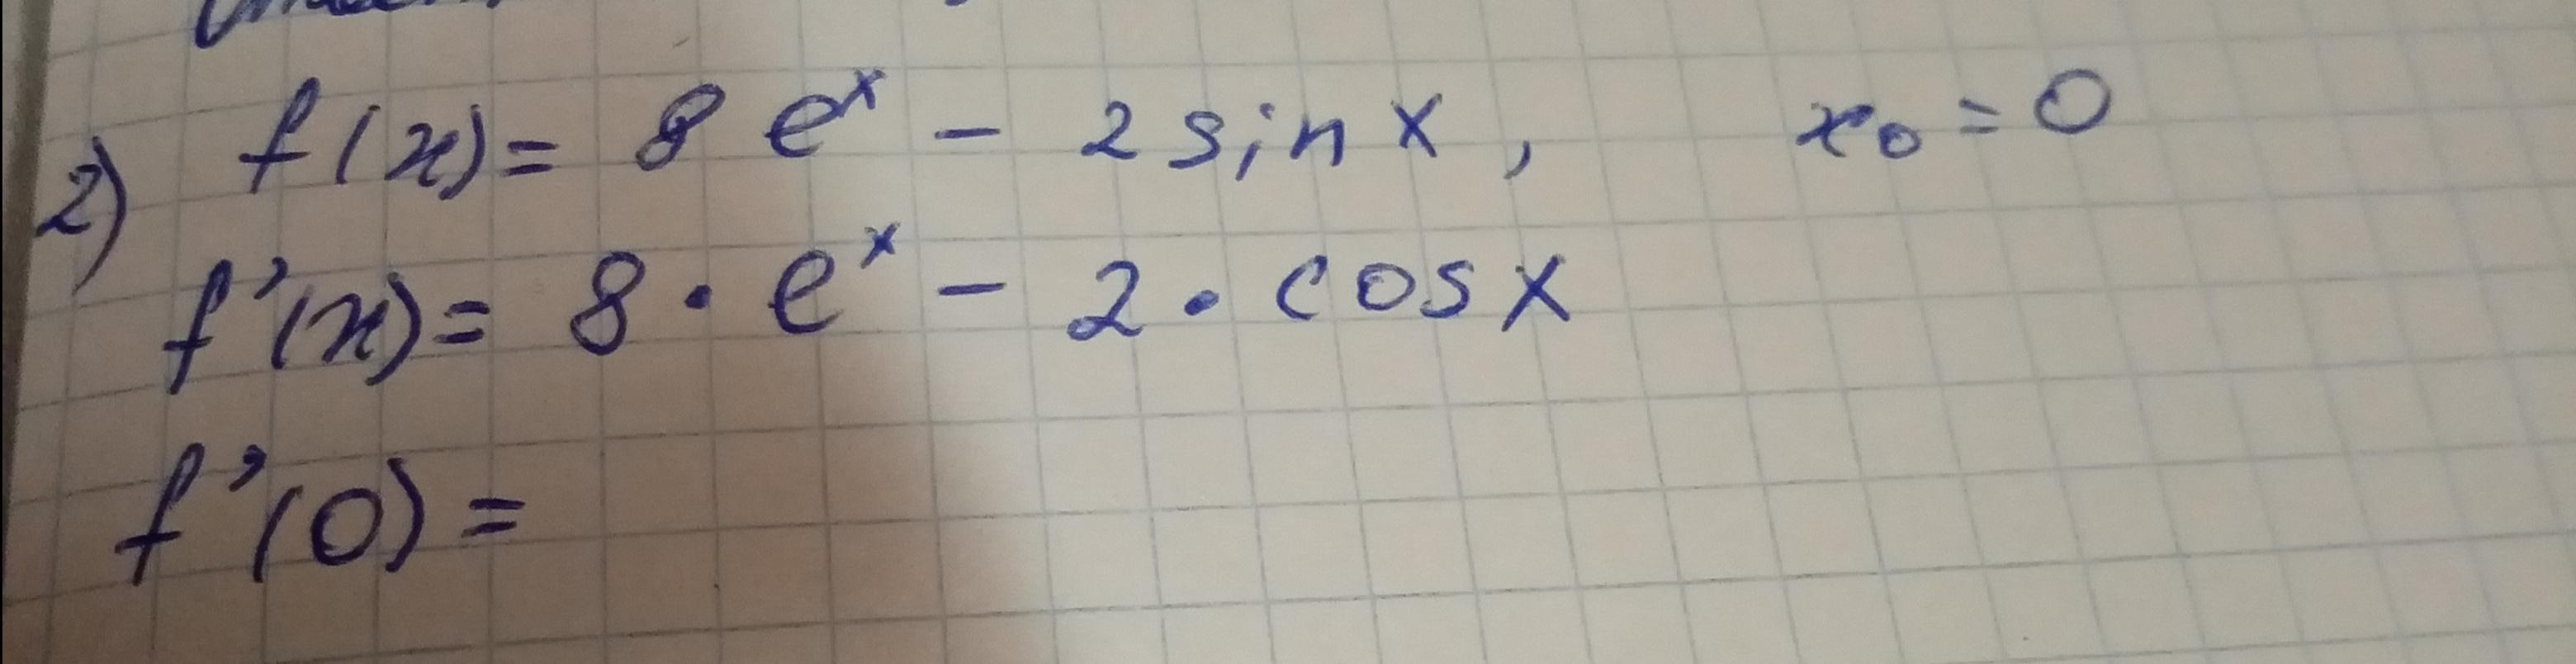 2) f(x) = 8 e^x - 2 sin x , x₀ = 0
f'(x) = 8 · e^x - 2 · cos x
f'(0) =